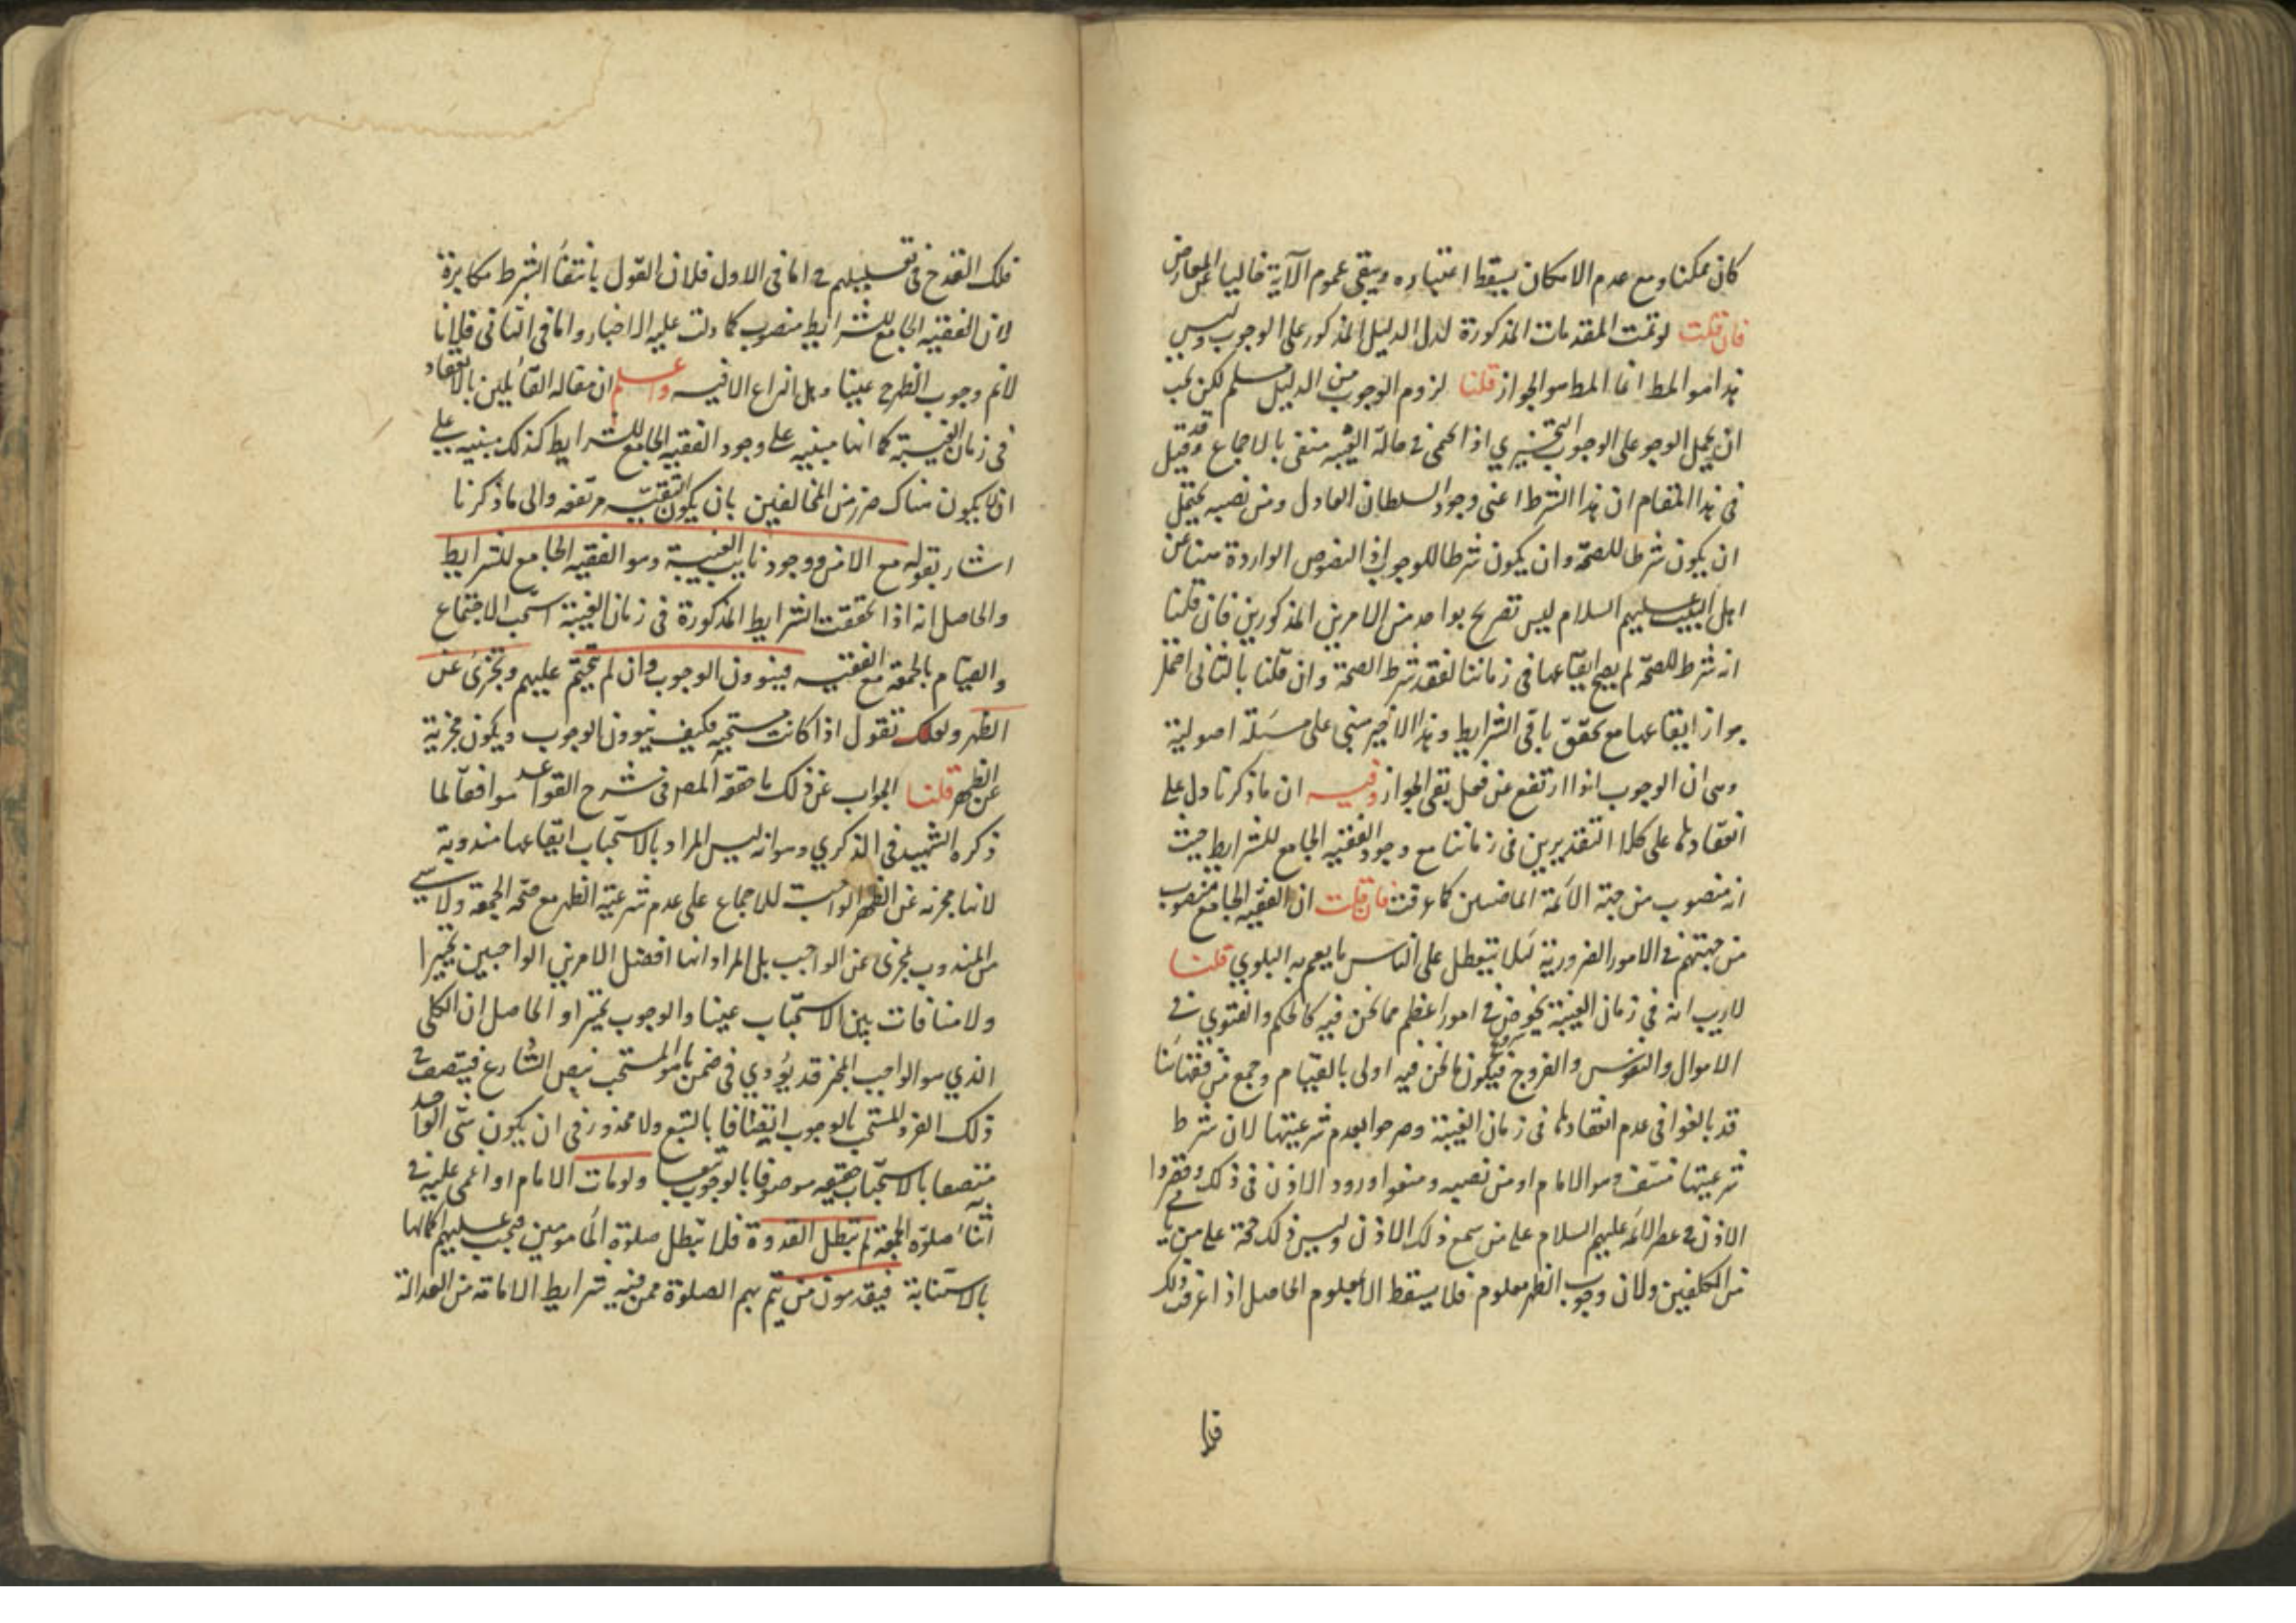 كان ممكنا ومع عدم الامكان يسقط اعتباره ويبقى عموم الآية خاليا عن المعارض
فان قلت لو تمت المقدمات المذكورة لدل الدليل المذكور على الوجوب وليس
هذا هو المط انما المط هو الجواز قلنا لزوم الوجوب من الدليل مسلم لكن يجب
ان يحمل الوجو على الوجوب التخييري اذ الحتمي في حالة الغيبة منفى بالاجماع وقد قيل
في هذا المقام ان هذا الشرط اعنى وجود السلطان العادل ومن نصبه يحتمل
ان يكون شرطا للصحة وان يكون شرطا للوجوب اذ النصوص الواردة منا عن
اهل البيت عليهم السلام ليس تصريح بواحد من الامرين المذكورين فان قلنا
انه شرط للصحة لم يصح ايقاعها في زماننا لفقد شرط الصحة وان قلنا بالثاني احتمل
جواز ايقاعها مع تحقق باقي الشرايط وهذا الاخير مبنى على مسئلة اصولية
وهى ان الوجوب اذا ارتفع عن فعل بقى الجواز وفيه ان ما ذكرنا دل على
انعقادها على كلا التقديرين في زماننا مع وجود الفقيه الجامع للشرايط حيث
انه منصوب من جهة الائمة الماضين كما عرفت فان قلت ان الفقيه الجامع منصوب
من جهتهم في الامور الضرورية لئلا يتعطل على الناس ما يعم به البلوي قلنا
لا ريب انه في زمان الغيبة يخوض في امور اعظم مما نحن فيه كالحكم والفتوى في
الاموال والنفوس والفروج فيكون ما نحن فيه اولى بالقيام وجمع من فقهائنا
قد بالغوا في عدم انعقادها في زمان الغيبة وصرحوا بعدم شرعيتها لان شرط
شرعيتها منتف وهو الامام او من نصبه ومنعوا ورود الاذن في ذلك وقصروا
الاذن في عصر الائمة عليهم السلام على من سمع ذلك الاذن وليس ذلك حجة على من ياتي
من المكلفين ولان وجوب الظهر معلوم فلا يسقط الا بمعلوم الحاصل اذا عرفت ذلك
فلك
فلك القدح في تعليلهم اما في الاول فلان القول بانتفاء الشرط مكابرة
لان الفقيه الجامع للشرايط منصوب كما دلت عليه الاخبار واما في الثاني فلانا
لا نم وجوب الظهر ح عينا وهل النزاع الا فيه واعلم ان مقاله القائلين بالانعقاد
في زمان الغيبة كما انها مبنيه على وجود الفقيه الجامع للشرايط كذلك مبنيه على
ان لا يكون هناك ضرر من المخالفين بان يكون التقية مرتفعه والى ما ذكرنا
اشار بقوله مع الامن ووجود نايب الغيبة وهو الفقيه الجامع للشرايط
والحاصل انه اذا تحققت الشرايط المذكورة في زمان الغيبة استحب الاجتماع
والقيام بالجمعة مع الفقيه فينوون الوجوب وان لم يتحتم عليهم وتجزئ عن
الظهر ولعلك تقول اذا كانت مستحبه فكيف ينوون الوجوب ويكون مجزية
عن الظهر قلنا الجواب عن ذلك ما حققه المصر في شرح القواعد موافقا لما
ذكره الشهيد في الذكري وهو انه ليس المراد بالاستحباب ايقاعها مندوبة
لانها مجزئه عن الظهر الواجبة للاجماع على عدم شرعية الظهر مع صحة الجمعة ولا شئ
من المندوب بمجزئ عن الواجب بل المراد انها افضل الامرين الواجبين تخييرا
ولا منافات بين الاستحباب عينا والوجوب تخييرا والحاصل ان الكلى
الذي هو الواجب المخير قد يؤدي في ضمن ما هو المستحب بنص الشارع فيتصف
ذلك الفرد المستحب بالوجوب اتصافا بالتبع ولا محذور في ان يكون شئ الواحد
متصفا بالاستحباب حقيقه موصوفا بالوجوب تبعا ولو مات الامام او اغمى عليه في
اثناء صلوة الجمعة لم تبطل القدوة فلا تبطل صلوة المأمومين فيجب عليهم اكمالها
بالاستنابة فيقدمون من يتم بهم الصلوة ممن فيه شرايط الامامة من العدالة